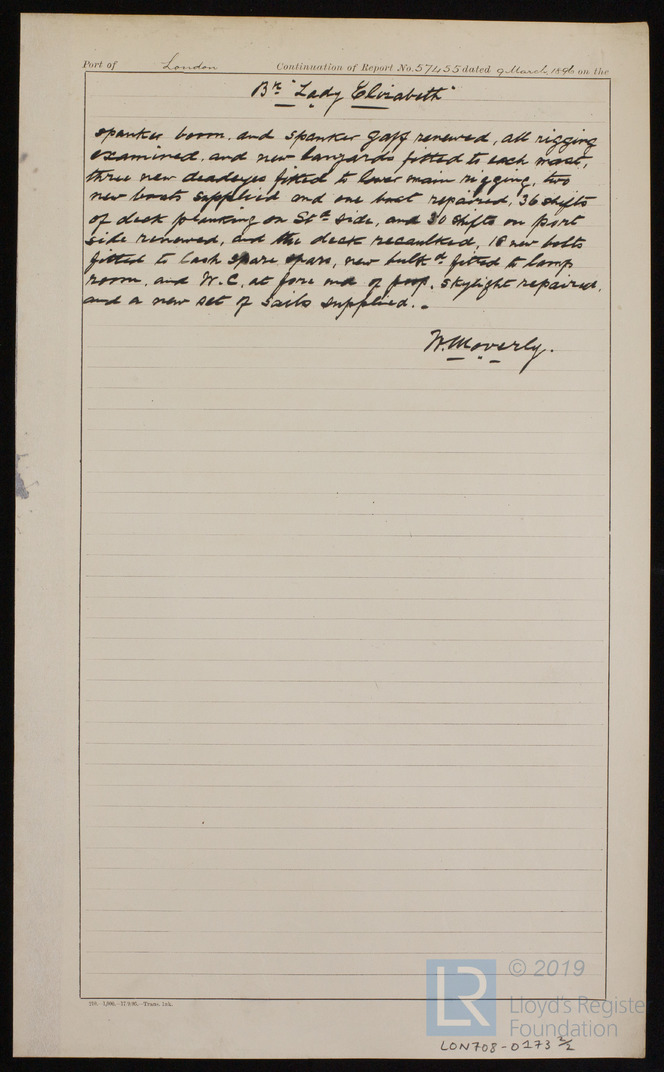 Port of London Continuation of Report No. 57455 dated 9 March 1896 on the
Bk "Lady Elizabeth"
spanker boom. and spanker gaff renewed, all rigging
examined. and new lanyards fitted to each mast,
three new deadeyes fitted to lower main rigging, two
new boats supplied and one boat repaired, 36 shifts
of deck planking on Std side, and 30 shifts on port
side renewed, and the deck recaulked, 18 new bolts
fitted to lash spare spars, new bulkd fitted to lamp
room. and W.C. at fore end of poop. skylight repaired.
and a new set of sails supplied.
W. Moverly.
Trans. Ink.
© 2019
LR
Lloyd's Register
Foundation
LON708-0173 2/2